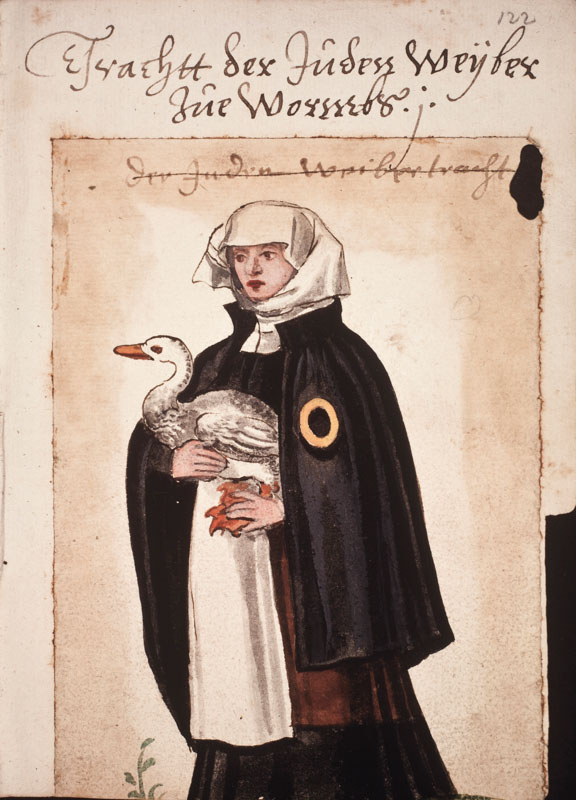 122
Trachtt der Juden Weyber
Jue Wormbs.
der Juden Weibertracht